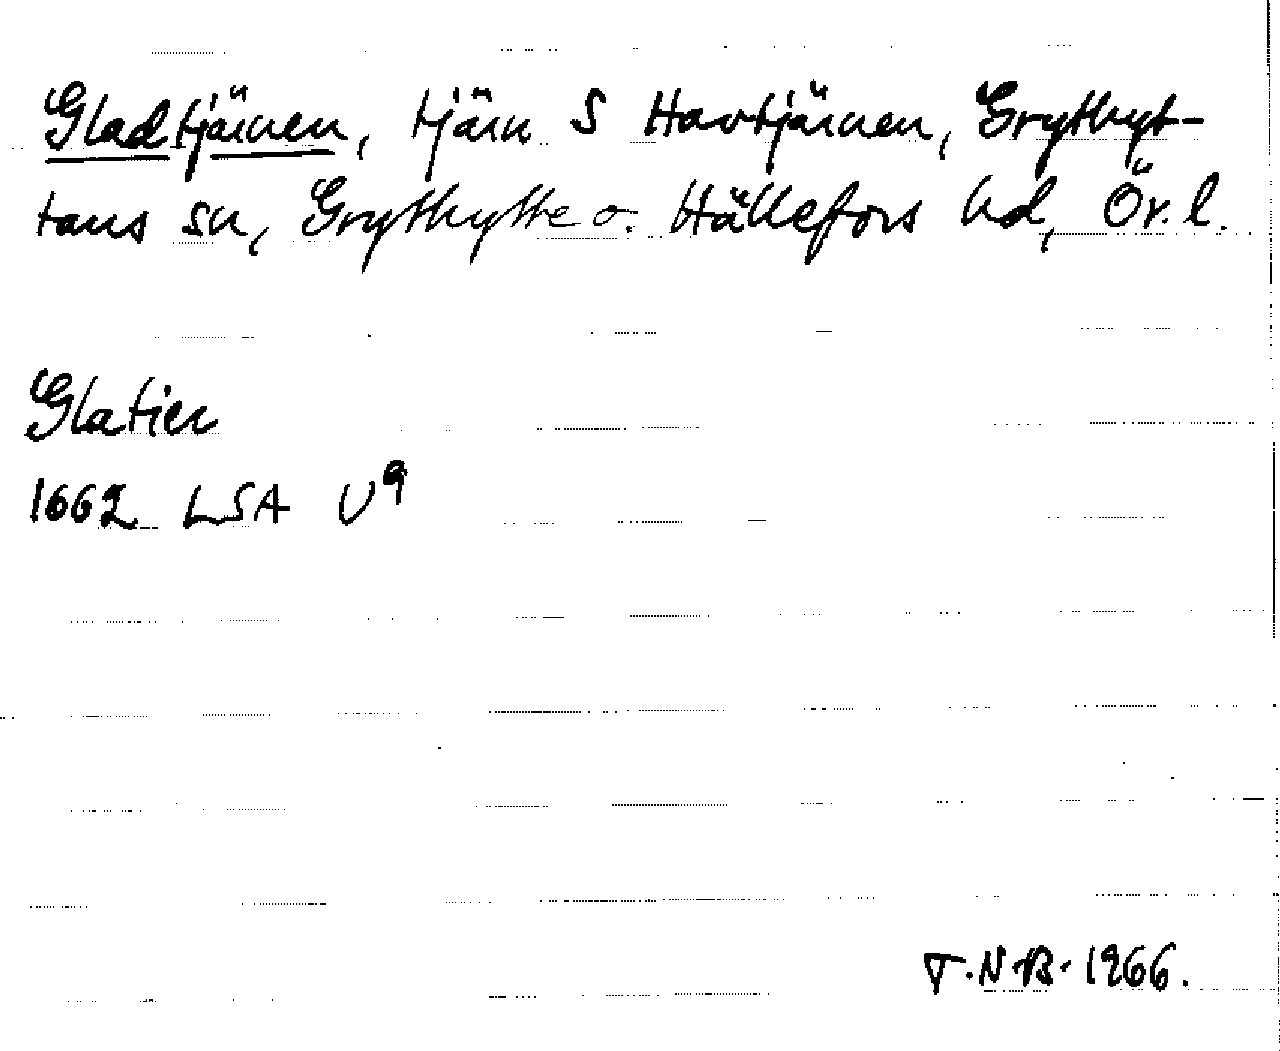 Gladtjärnen, tjärn S Havtjärnen, Grythyt-
tans sn, Grythytte o. Hällefors hd, Ör. l.
Glatien
1662 LSA U9
T.N.B. 1966.